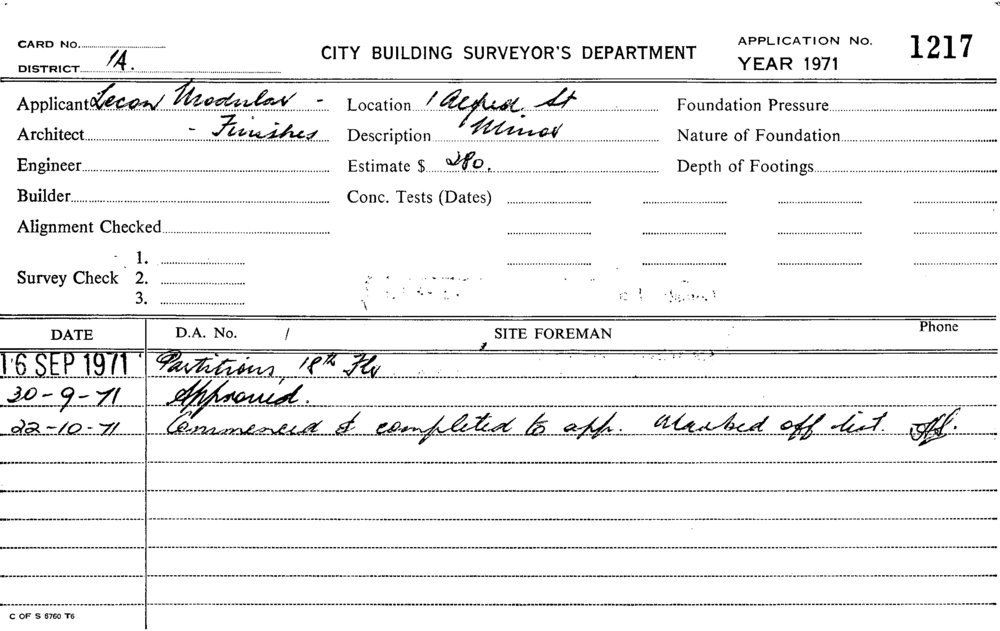 CARD NO.
DISTRICT 1A.
CITY BUILDING SURVEYOR'S DEPARTMENT
APPLICATION No. 1217
YEAR 1971
Applicant Lecon Modular - Location 1 Alfred St Foundation Pressure
Architect - Finishes Description Minor Nature of Foundation
Engineer Estimate $ 280. Depth of Footings
Builder Conc. Tests (Dates)
Alignment Checked
1.
Survey Check 2.
3.
DATE D.A. No. / SITE FOREMAN Phone
16 SEP 1971 Partitions, 18th Flr
30-9-71 Approved.
22-10-71 Commenced & completed to app. Marked off list.
C OF S 6760 T6